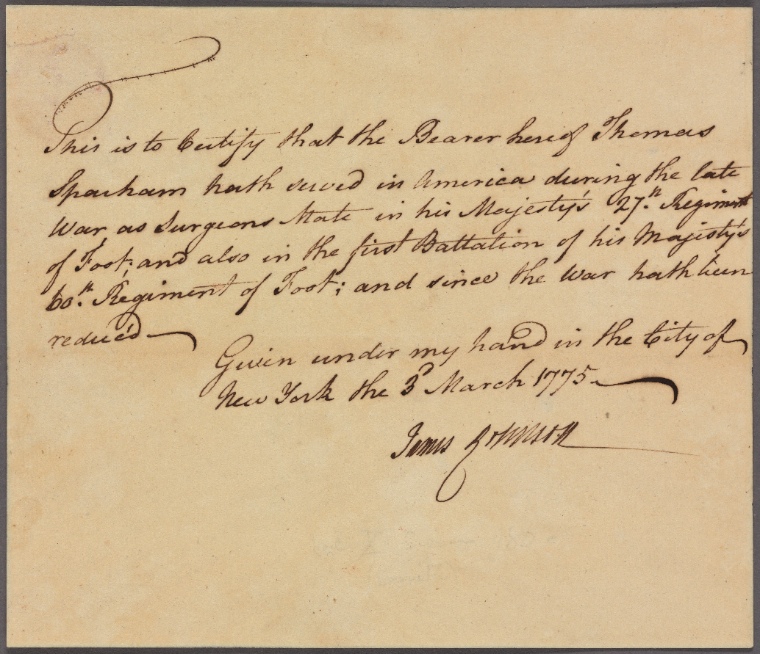 This is to Certify that the Bearer hereof Thomas
Sparham hath served in America during the late
War as Surgeons Mate in his Majesty's 27.th Regiment
of Foot; and also in the first Battalion of his Majesty's
60.th Regiment of Foot; and since the War hath been
reduc'd
Given under my hand in the City of
New York the 3.d March 1775
James Johnson